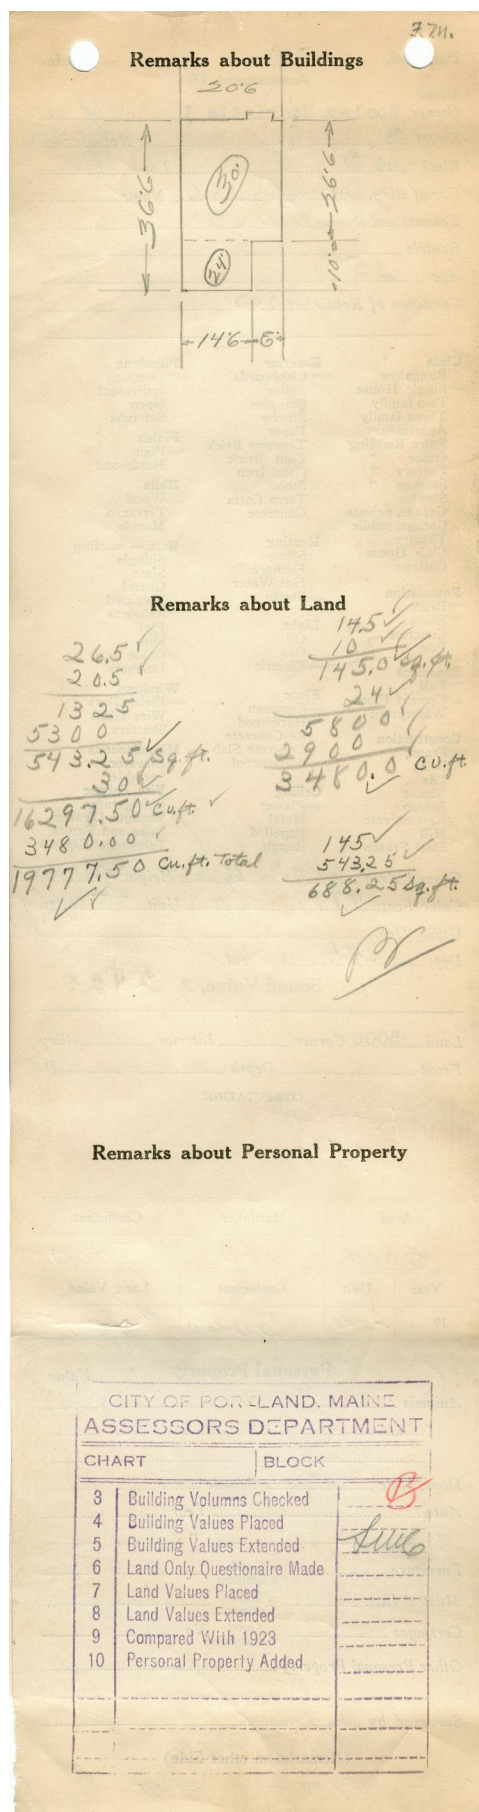 F.M.
Remarks about Buildings
20'6
36'6
30'
26'6
24'
10'0
14'6 6'
Remarks about Land
26.5
20.5
1325
5300
543.25 Sq.ft.
30
16297.50 Cu.ft.
3480.00
19777.50 Cu.ft. Total
14.5
10
145.0 Sq.ft.
24
5800
2900
3480.0 CU.ft.
145
543.25
688.25 Sq.ft.
Remarks about Personal Property
CITY OF PORTLAND, MAINE
ASSESSORS DEPARTMENT
CHART BLOCK
3 Building Volumns Checked B
4 Building Values Placed
5 Building Values Extended
6 Land Only Questionaire Made
7 Land Values Placed
8 Land Values Extended
9 Compared With 1923
10 Personal Property Added